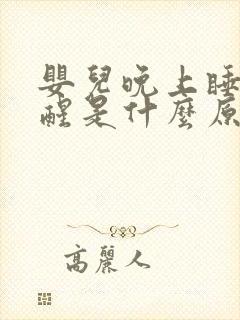 嬰兒晚上睡
醒是什麼原
高麗人